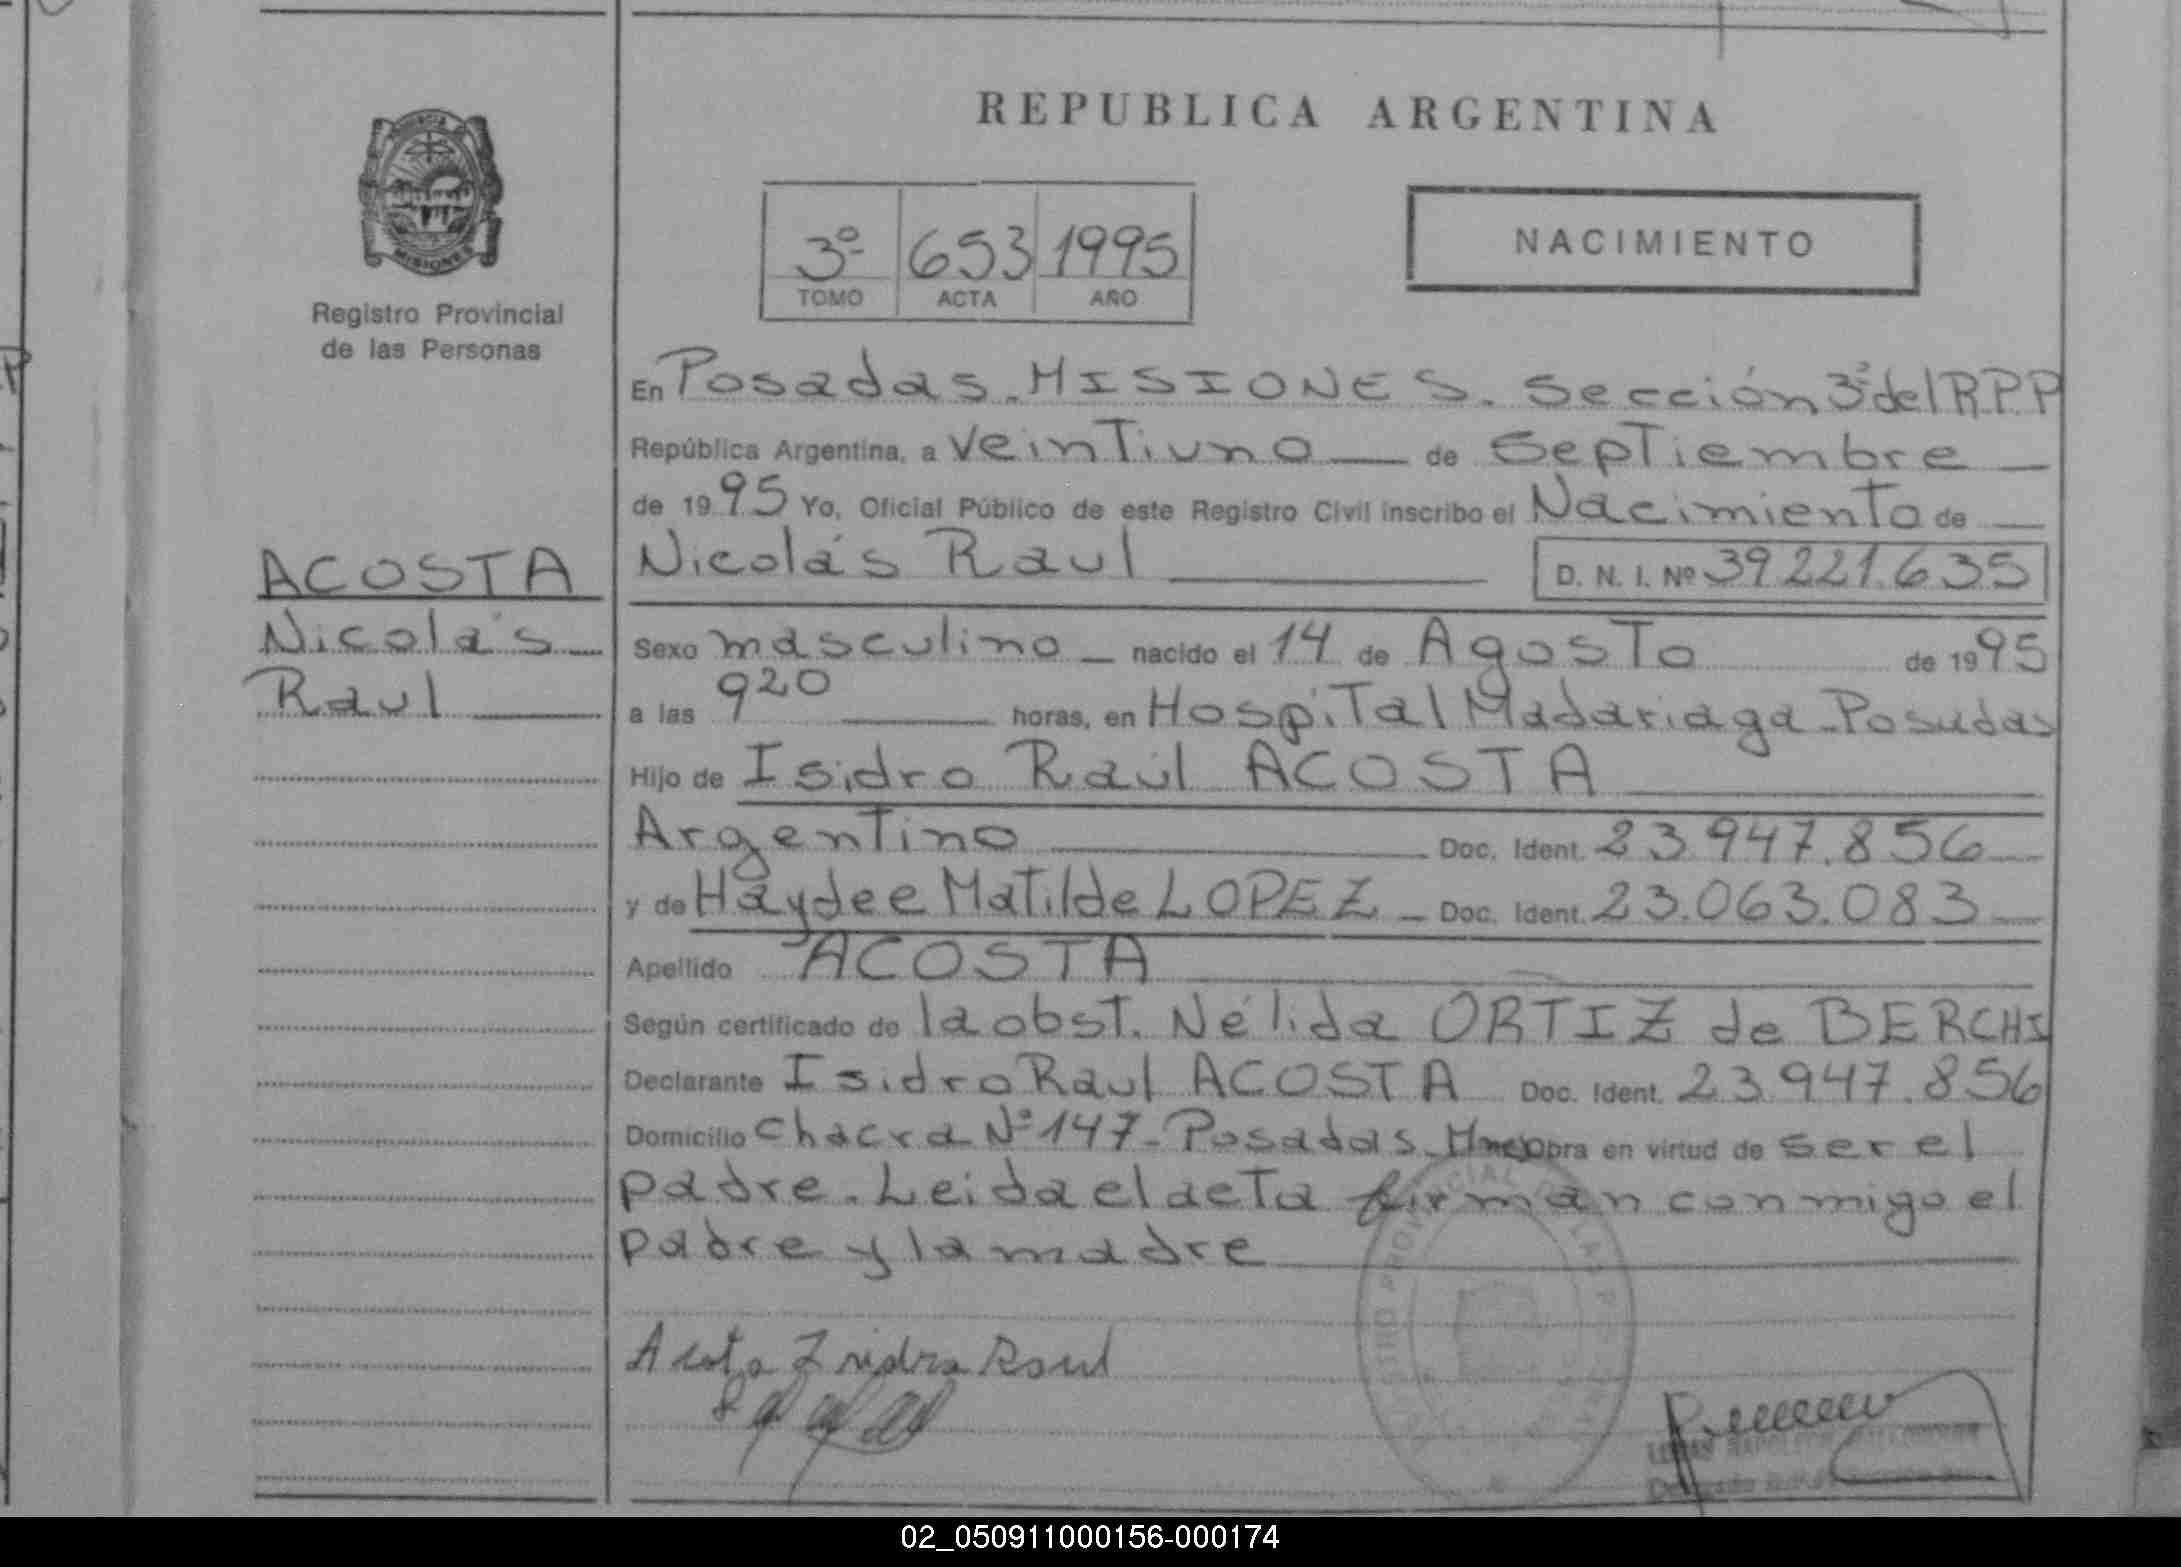 REPUBLICA ARGENTINA
PROVINCIA DE
MISIONES
Registro Provincial
de las Personas
3º 653 1995
TOMO ACTA AÑO
NACIMIENTO
En Posadas. MISIONES. Sección 3ª del R.P.P
República Argentina, a veintiuno de Septiembre
de 1995 Yo, Oficial Público de este Registro Civil inscribo el Nacimiento de
Nicolás Raul D. N. I. Nº 39.221.635
ACOSTA
Nicolás
Raul
Sexo masculino nacido el 14 de Agosto de 1995
a las 9 20 horas, en Hospital Madariaga - Posadas
Hijo de Isidro Raúl ACOSTA
Argentino Doc. Ident. 23.947.856
y de Haydee Matilde LOPEZ - Doc. Ident. 23.063.083
Apellido ACOSTA
Según certificado de la obst. Nélida ORTIZ de BERCHI
Declarante Isidro Raul ACOSTA Doc. Ident. 23.947.856
Domicilio Chacra Nº 147 - Posadas. obra en virtud de ser el
padre. Leida el acta firman conmigo el
padre y la madre
Acosta Isidro Raul
02_050911000156-000174